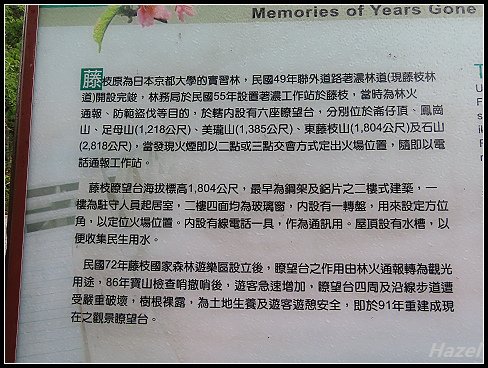 Memories of Years Gone
藤枝原為日本京都大學的實習林，民國49年聯外道路荖濃林道(現藤枝林
道)開設完竣，林務局於民國55年設置荖濃工作站於藤枝，當時為林火
通報、防範盜伐等目的，於轄內設有六座瞭望台，分別位於崙仔頂、鳳崗
山、足母山(1,218公尺)、美瓏山(1,385公尺)、東藤枝山(1,804公尺)及石山
(2,818公尺)，當發現火煙即以二點或三點交會方式定出火場位置，隨即以電
話通報工作站。
藤枝瞭望台海拔標高1,804公尺，最早為鋼架及鋁片之二樓式建築，一
樓為駐守人員起居室，二樓四面均為玻璃窗，內設有一轉盤，用來設定方位
角，以定位火場位置。內設有線電話一具，作為通訊用。屋頂設有水槽，以
便收集民生用水。
民國72年藤枝國家森林遊樂區設立後，瞭望台之作用由林火通報轉為觀光
用途，86年寶山檢查哨撤哨後，遊客急速增加，瞭望台四周及沿線步道遭
受嚴重破壞，樹根裸露，為土地生養及遊客遊憩安全，即於91年重建成現
在之觀景瞭望台。
Hazel